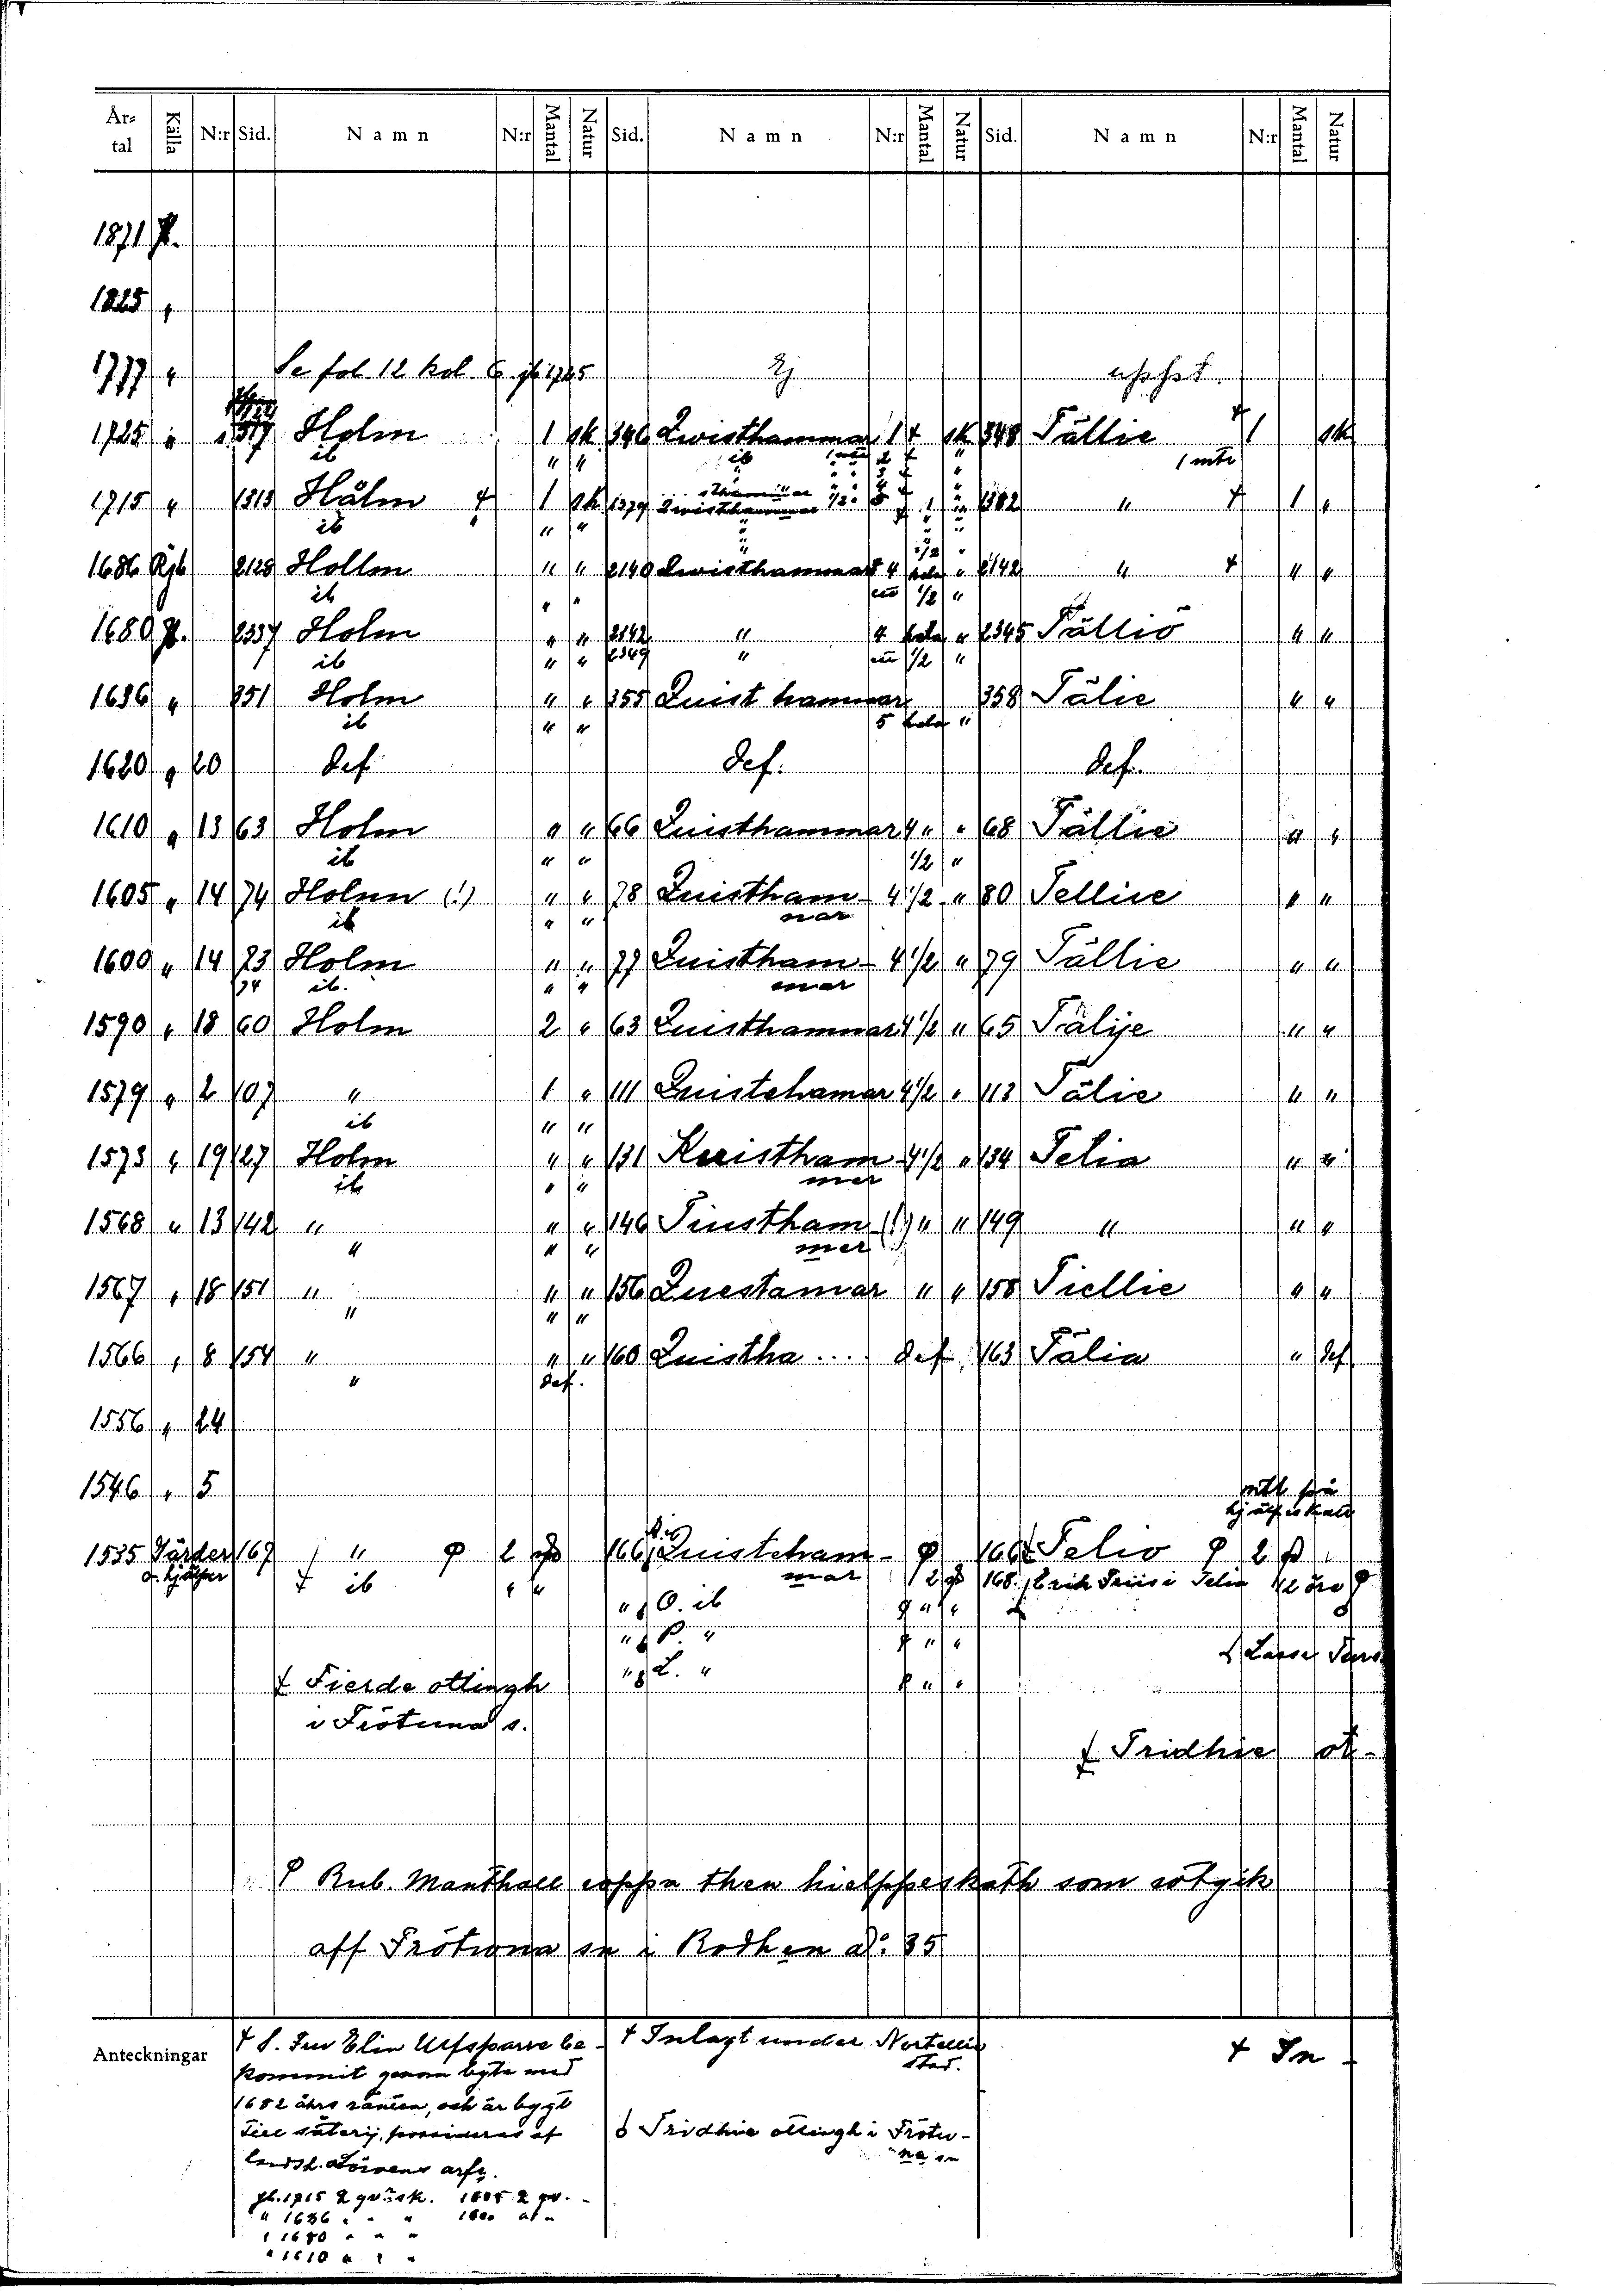 År-tal Källa N:r Sid. Namn N:r Mantal Natur Sid. Namn N:r Mantal Natur Sid. Namn N:r Mantal Natur
1871 jb.
1825 "
1777 " Se fol. 12 kol. 6 jb 1725 Ej uppst.
1725 " 317 Holm 1 sk 346 Qwisthammar 1 + sk 348 Tällie + 1 sk
ib " " ib 2 + " 1 mtr
1715 " 1313 Hålm + 1 sk 1379 Qwisthammar 1382 " + 1 "
ib " "
1686 Rjb 2128 Hollm " " 2140 Qwisthammar + 4 hela " 2142 " + " "
ib " " 1/2 "
1680 jb. 2337 Holm " " 2342 " 4 hela " 2345 Tälliö " "
ib " " 2349 " 1/2 "
1636 " 351 Holm " " 355 Quist hammar 358 Tälie " "
ib " " 5 hela "
1620 " 20 def def. def.
1610 " 13 63 Holm " " 66 Quisthammar 4 " " 68 Tällie " "
ib " " 1/2 "
1605 " 14 74 Holnn (!) " " 78 Quistham- 4 1/2 " 80 Tellije " "
ib " " mar
1600 " 14 73 Holm " " 77 Quistham- 4 1/2 " 79 Tällie " "
74 ib. " " mar
1590 " 18 60 Holm 2 " 63 Quisthammar 4 1/2 " 65 Tälije " "
1579 " 2 107 " 1 " 111 Quistehamar 4 1/2 " 113 Tälie " "
ib " "
1573 " 19 127 Holm " " 131 Kuistham- 4 1/2 " 134 Telia " "
ib " " mer
1568 " 13 142 " " " 146 Tiustham- (!) " " 149 " " "
" " " mer
1567 " 18 151 " " " 156 Questamar " " 158 Tiellie " "
" " "
1566 " 8 154 " " " 160 Quistha.... def. 163 Tälia " def
" def.
1556 " 24
1546 " 5
mtl på
hjälpeskatt
1535 Gärder 167 " φ 2 166 Quisteham- φ 166 Telio φ 2
o. hjälper ib " " mar 2 168. Erik Friis i Telia 1/2 öre
" O. ib " "
" P. " " "
Lasse
" L. " " "
Fierde ottingh
i Frötuna s.
Tridhie ot-
φ Rub. Manthall wppa then hielppeskath som wtgik
aff Frötwna sn i Rodhen a:o 35
Anteckningar
+ S. Fru Elin Ulfsparre be-
kommit genom byte med
1682 åhrs räntan, och är bygt
till säterij, possideras af
landsh. Löwens arfr.
jb. 1715 2 gr sk. 1605 2 gr.
" 1636 " " " 1600
" 1680 " " "
" 1610 " " "
+ Inlagt under Nortellie
stad.
Tridhie ottingh i Frötu-
na sn
+ In-